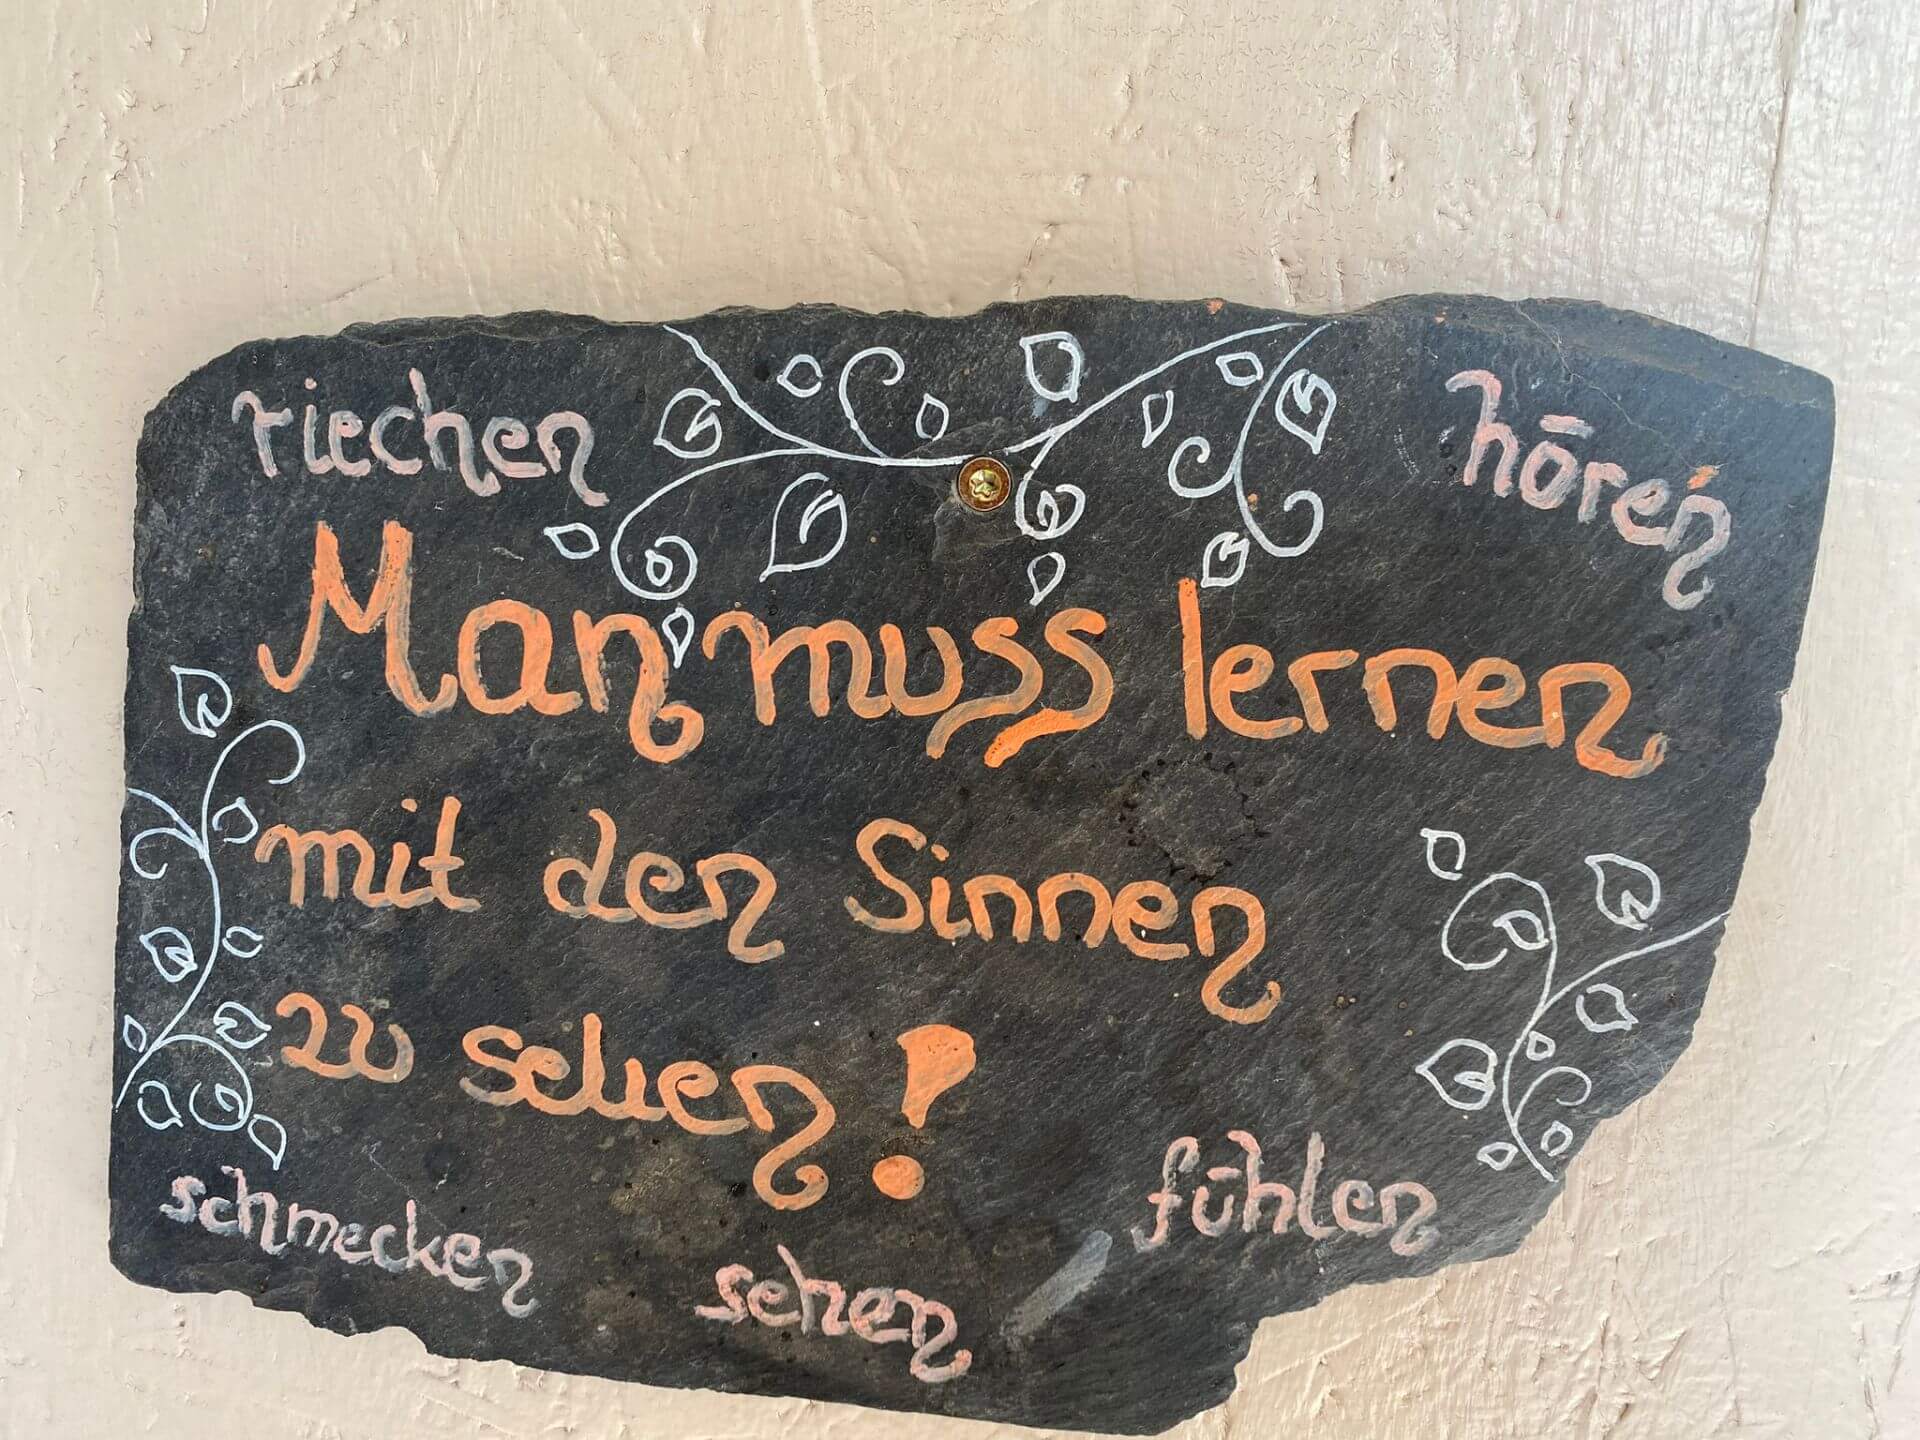 riechen
hören
Man muss lernen
mit den Sinnen
zu sehen!
schmecken
sehen
fühlen